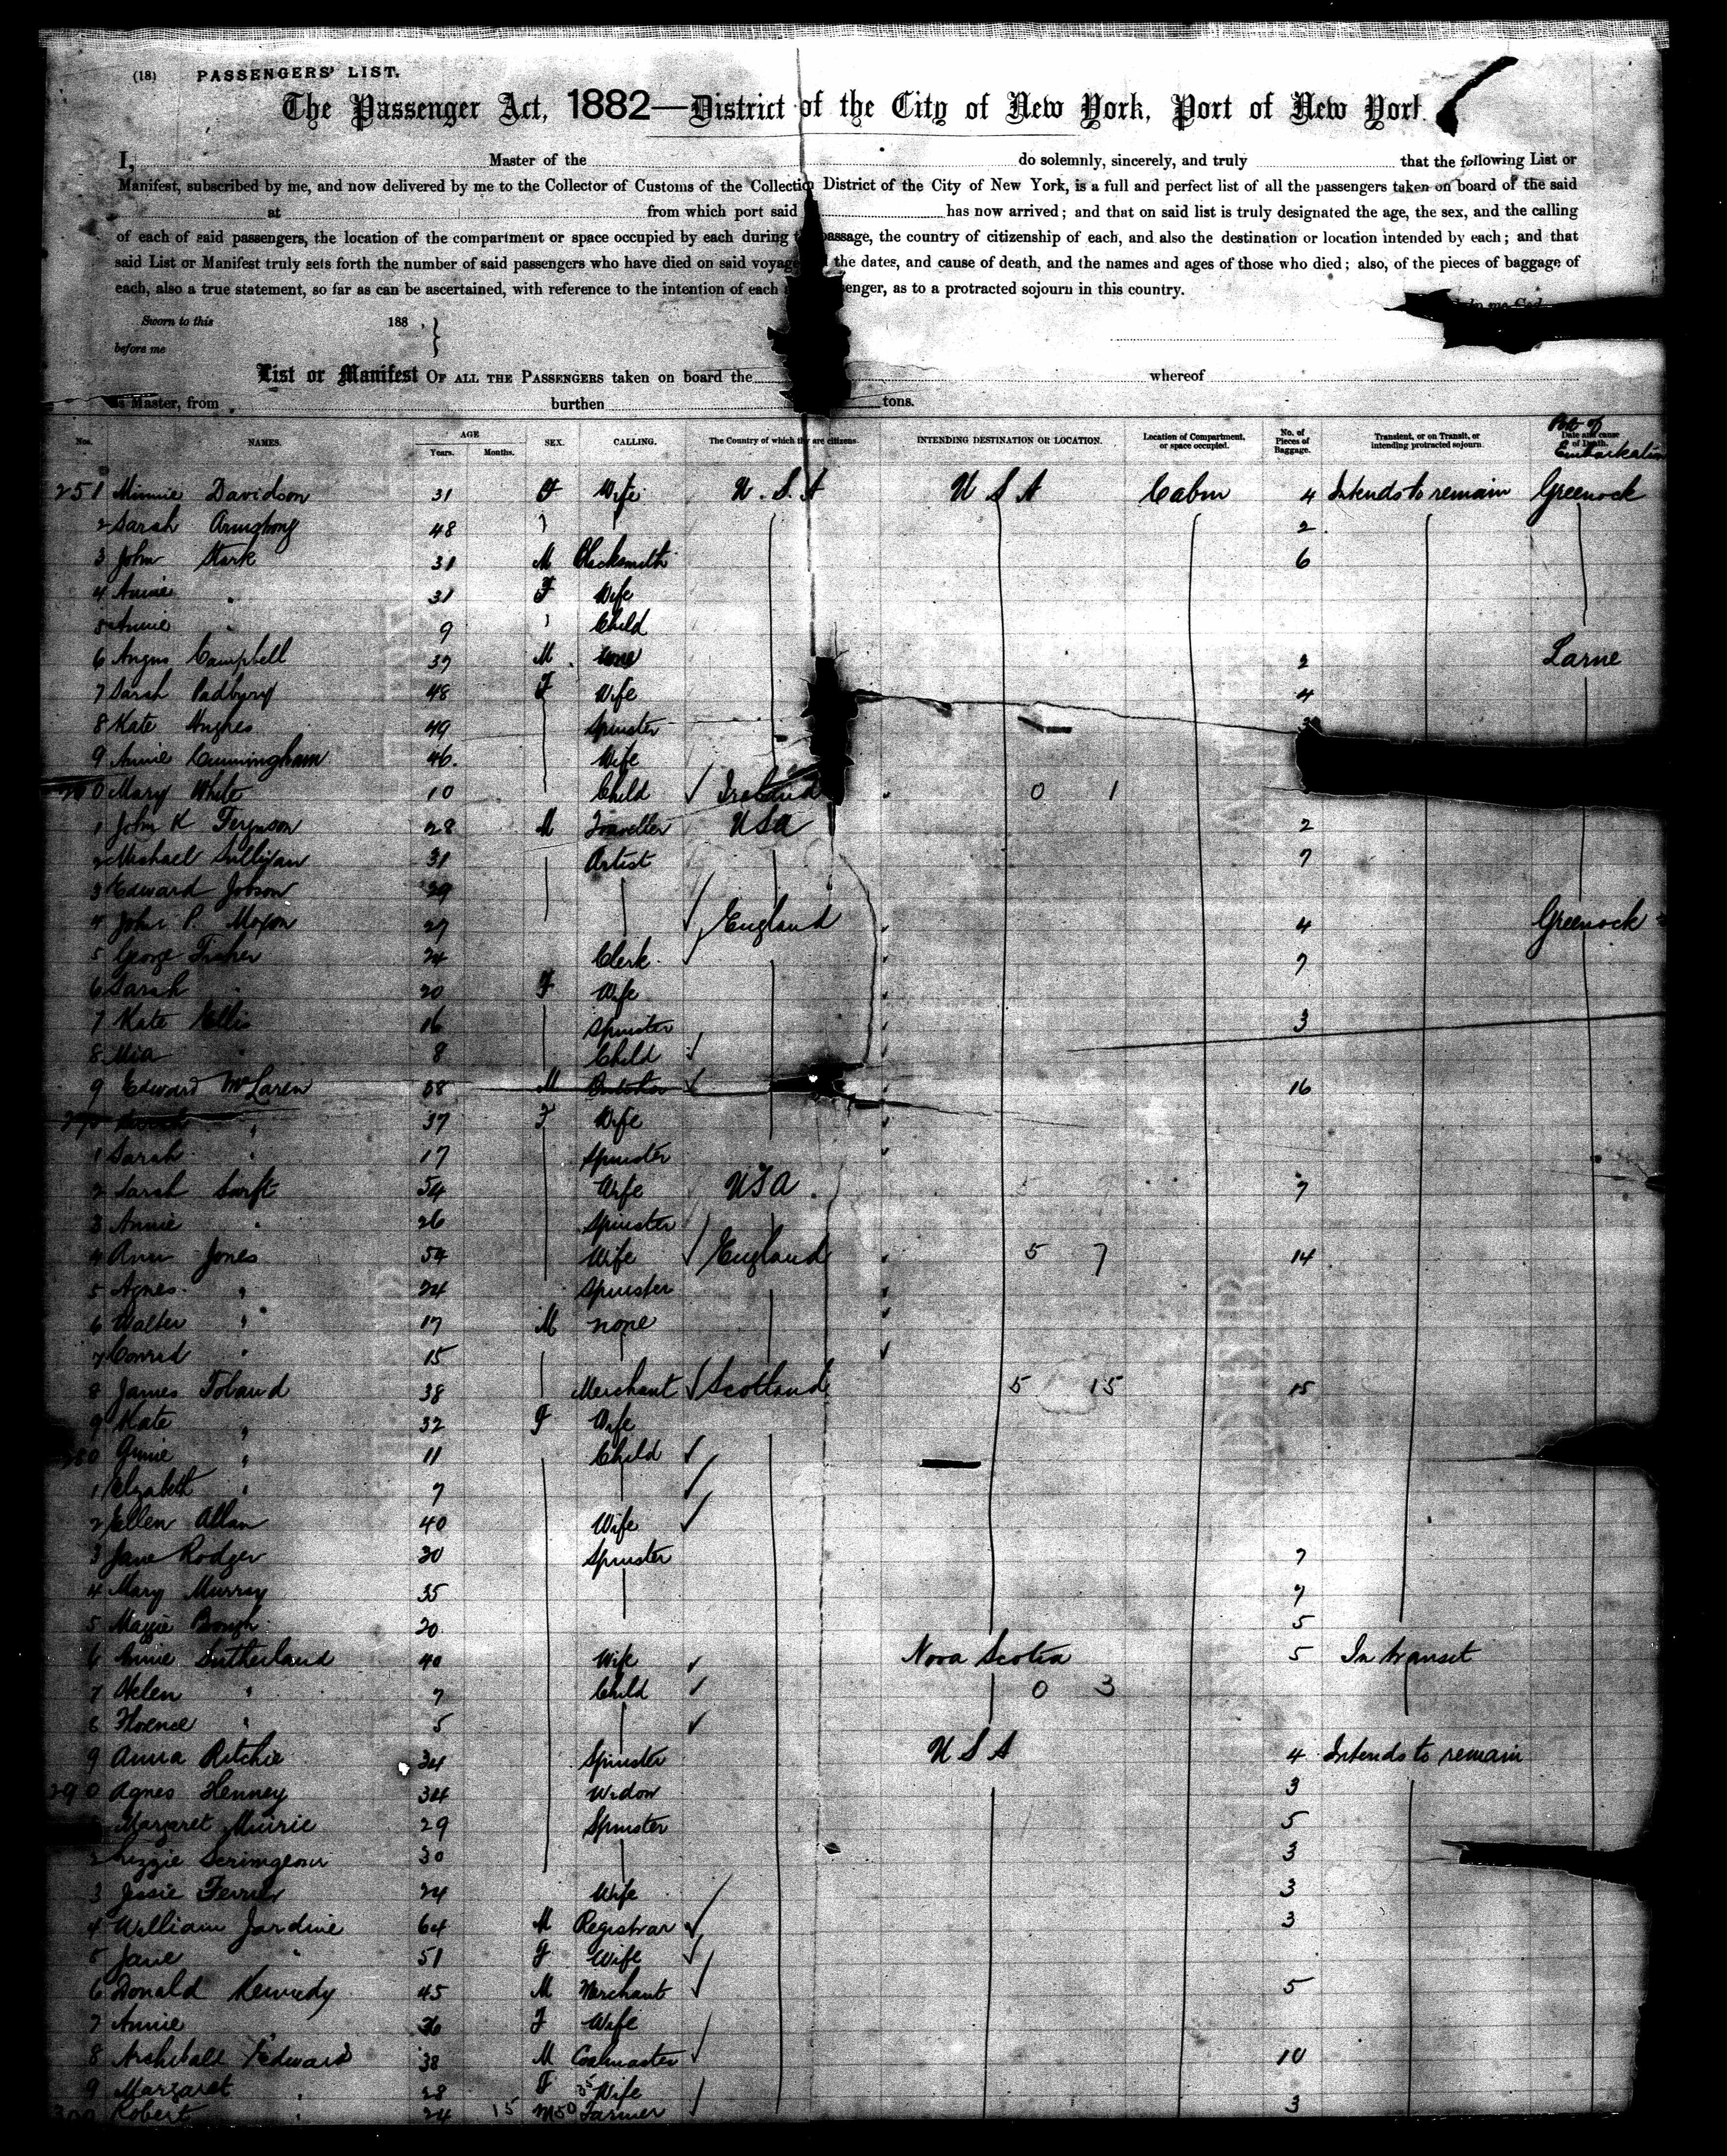 (18) PASSENGERS' LIST.
The Passenger Act, 1882—District of the City of New York, Port of New York.
I, Master of the do solemnly, sincerely, and truly that the following List or
Manifest, subscribed by me, and now delivered by me to the Collector of Customs of the Collection District of the City of New York, is a full and perfect list of all the passengers taken on board of the said
at from which port said has now arrived; and that on said list is truly designated the age, the sex, and the calling
of each of said passengers, the location of the compartment or space occupied by each during passage, the country of citizenship of each, and also the destination or location intended by each; and that
said List or Manifest truly sets forth the number of said passengers who have died on said voyage the dates, and cause of death, and the names and ages of those who died; also, of the pieces of baggage of
each, also a true statement, so far as can be ascertained, with reference to the intention of each senger, as to a protracted sojourn in this country.
Sworn to this 188 , }
before me
List or Manifest OF ALL THE PASSENGERS taken on board the whereof
as Master, from burthen tons.
Nos. NAMES. AGE Years. Months. SEX. CALLING. The Country of which they are citizens. INTENDING DESTINATION OR LOCATION. Location of Compartment, or space occupied. No. of Pieces of Baggage. Transient, or on Transit, or intending protracted sojourn. Date and cause of Death. Port of Embarkation
251 Minnie Davidson 31 F Wife U.S.A U S A Cabin 4 Intends to remain Greenock
2 Sarah Armstrong 48 2
3 John Stark 31 M Blacksmith 6
4 Annie " 31 F Wife
5 Annie " 9 Child
6 Angus Campbell 37 M none 2 Larne
7 Sarah Padbury 48 F Wife 4
8 Kate Hughes 49 Spinster
9 Annie Cunningham 46 Wife
0 Mary White 10 Child Ireland 0 1
1 John K Ferguson 28 M Traveller USA 2
2 Michael Sullivan 31 Artist 7
3 Edward Jobson 29
4 John P. Moxon 27 England 4 Greenock
5 George Fisher 24 Clerk 7
6 Sarah " 20 F Wife
7 Kate Ellis 16 Spinster 3
8 Mia " 8 Child
9 Edward McLaren 38 M 16
270 " 37 F Wife
1 Sarah " 17 Spinster
2 Sarah Swift 54 Wife USA 7
3 Annie " 26 Spinster
4 Ann Jones 54 Wife England 5 7 14
5 Agnes " 24 Spinster
6 Walter " 17 M none
7 Conrad " 15
8 James Toband 38 Merchant Scotland 5 15 15
9 Kate " 32 F Wife
280 " 11 Child
1 Elizabeth " 7
2 Ellen Allan 40 Wife
3 Jane Rodger 30 Spinster 7
4 Mary Murray 35 7
5 Maggie 20 5
6 Annie Sutherland 40 Wife Nova Scotia 5 In transit
7 Helen " 7 Child 0 3
8 Florence " 5
9 Anna Ritchie 34 Spinster U S A 4 Intends to remain
290 Agnes Henney 34 Widow 3
Margaret Muirie 29 Spinster 5
2 Lizzie Scrimgeour 30 3
3 Jessie Ferrier 24 Wife 3
4 William Jardine 64 M Registrar 3
5 Jane " 51 F Wife
6 Donald Kennedy 45 M Merchant 5
7 Annie 36 F Wife
8 Archibald Edward 38 M Coalmaster 10
9 Margaret " 28 F Wife
300 Robert " 24 15 M 50 Farmer 3